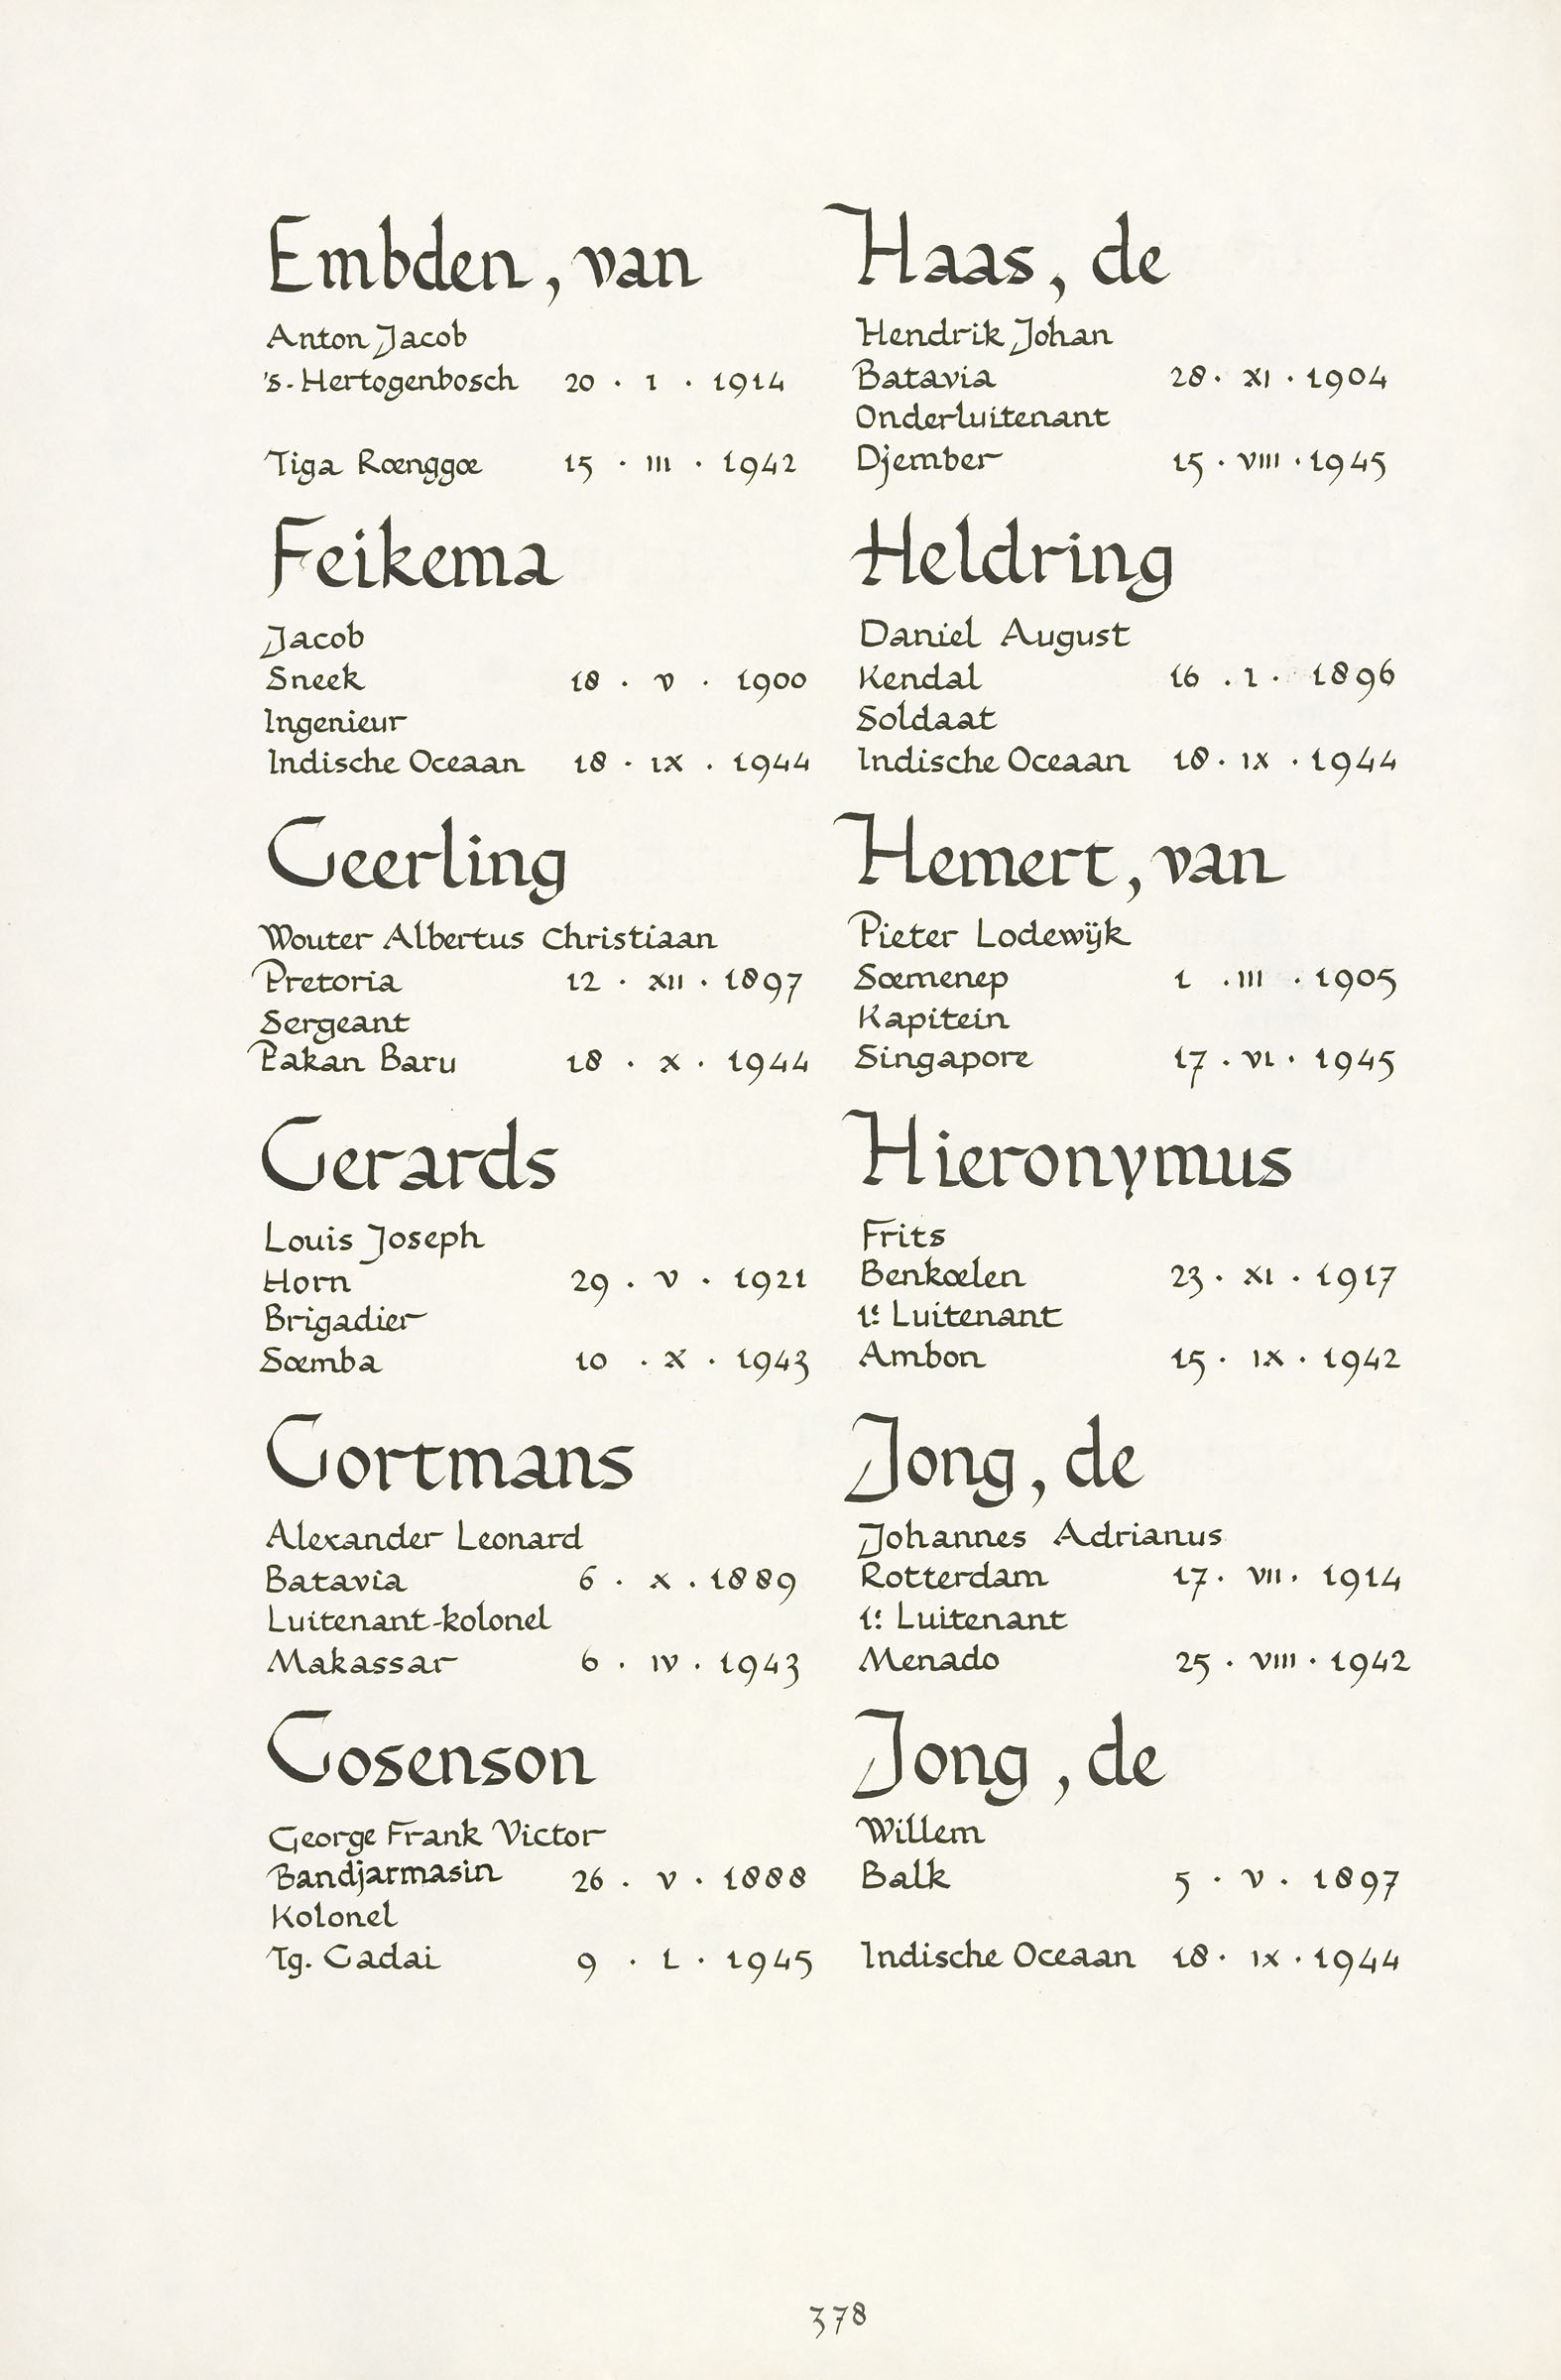 Embden, van
Anton Jacob
's-Hertogenbosch 20 · I · 1914
Tiga Rœnggœ 15 · III · 1942
Feikema
Jacob
Sneek 18 · V · 1900
Ingenieur
Indische Oceaan 18 · IX · 1944
Geerling
Wouter Albertus Christiaan
Pretoria 12 · XII · 1897
Sergeant
Pakan Baru 18 · X · 1944
Gerards
Louis Joseph
Horn 29 · V · 1921
Brigadier
Sœmba 10 · X · 1943
Gortmans
Alexander Leonard
Batavia 6 · X · 1889
Luitenant-kolonel
Makassar 6 · IV · 1943
Gosenson
George Frank Victor
Bandjarmasin 26 · V · 1888
Kolonel
Tg. Gadai 9 · I · 1945
Haas, de
Hendrik Johan
Batavia 28 · XI · 1904
Onderluitenant
Djember 15 · VIII · 1945
Heldring
Daniel August
Kendal 16 · I · 1896
Soldaat
Indische Oceaan 18 · IX · 1944
Hemert, van
Pieter Lodewijk
Sœmenep 1 · III · 1905
Kapitein
Singapore 17 · VI · 1945
Hieronymus
Frits
Benkœlen 23 · XI · 1917
1e Luitenant
Ambon 15 · IX · 1942
Jong, de
Johannes Adrianus
Rotterdam 17 · VII · 1914
1e Luitenant
Menado 25 · VIII · 1942
Jong, de
Willem
Balk 5 · V · 1897
Indische Oceaan 18 · IX · 1944
378